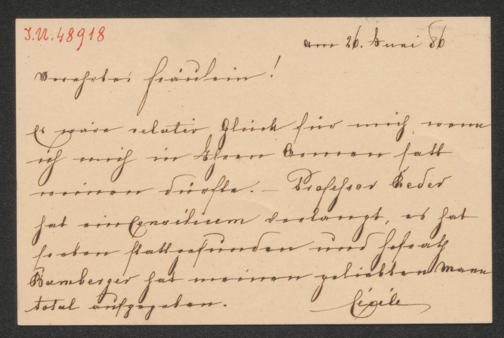 J.N. 48918
am 26. Juni 86
Verehrtes Fräulein!
Es wäre relativ Glück für mich, wenn
ich mich in Ihren Armen satt
weinen dürfte. – Professor Leder
hat ein Consilium verlangt, es hat
soeben stattgefunden und Hofrath
Bamberger hat meinen geliebten Mann
total aufgegeben.
Cäcilie